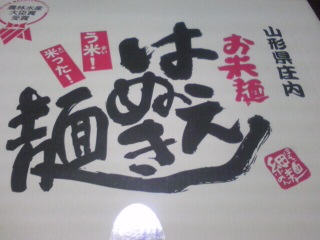 農林水産
大臣賞
受賞
う米!
米った!
山形県庄内
お米麺
はえぬき
麺